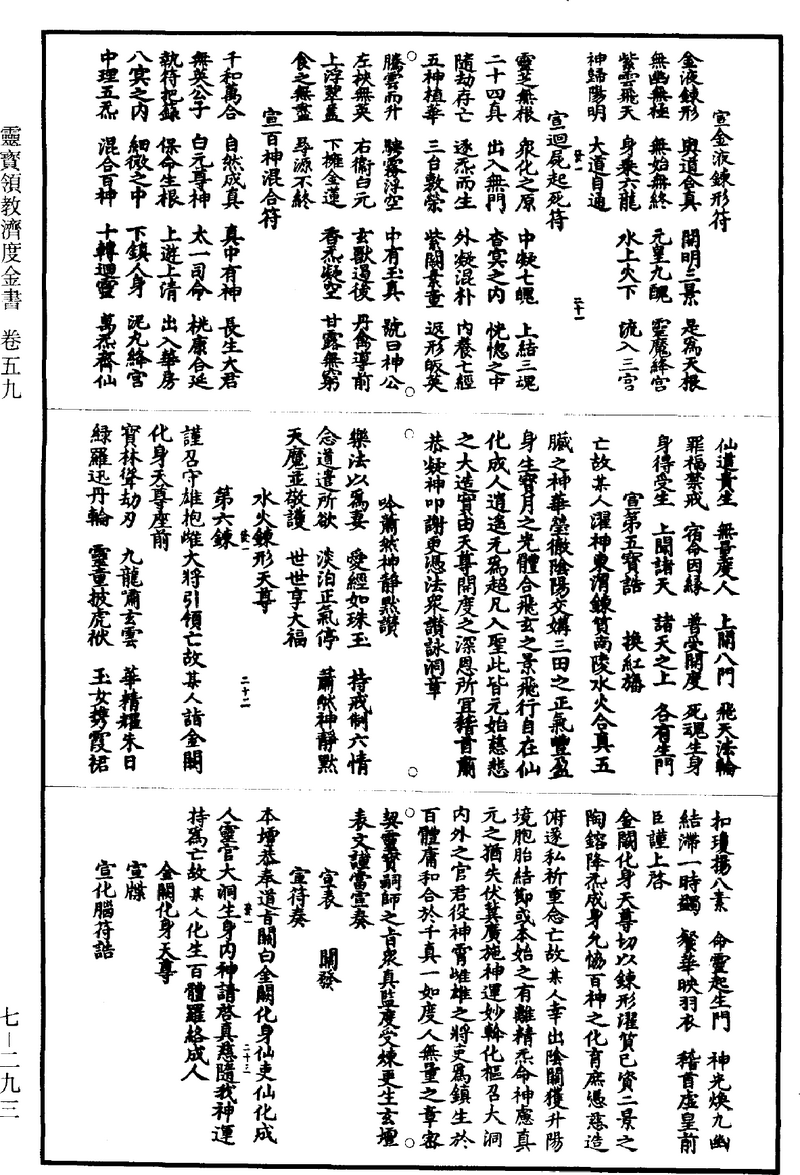 宣金液鍊形符
金液鍊形　與道合真　開明三景　是為天根
無幽無極　無始無終　元皇九醜　靈魔絳宮
紫雲飛天　身乘六龍　水上火下　流入三宮
神歸陽明　大道自通
宣迴屍起死符
靈芝無根　衆化之原　中凝七魄　上結三魂
二十四真　出入無門　杳冥之內　恍惚之中
隨劫存亡　逐炁而生　外凝混朴　內養七經
五神植華　三台敷榮　紫闕素童　返形皈英
騰雲而升　驂霧浮空　中有玉真　號曰神公
左挾無英　右衞白元　玄獸逼後　丹禽導前
上浮翠蓋　下擁金蓮　香炁凝空　甘露無窮
食之無盡　尋源不終
宣百神混合符
千和萬合　自然成真　真中有神　長生大君
無英公子　白元尊神　太一司命　桃康合延
執符把錄　保命生根　上遊上清　出入華房
八冥之內　細微之中　下鎮人身　泥丸絳宮
中理五炁　混合百神　十轉迴靈　萬炁齊仙
仙道貴生　無量度人　上開八門　飛天法輪
罪福禁戒　宿命因緣　普受開度　死魂生身
身得受生　上聞諸天　諸天之上　各有生門
宣第五寶誥　換紅旛
亡故某人濯神東渭鍊質南陵水火合真五
臟之神華瑩徹陰陽交媾三田之正氣豐盈
身生寶月之光體合飛玄之景飛行自在仙
化成人逍遙元為超凡入聖此皆元始慈悲
之大造實由天尊開度之深恩所冝稽首肅
恭凝神叩謝更憑法衆讚詠洞章
吟蕭然神靜默讚
樂法以為妻　愛經如珠玉　持戒制六情
念道遣所欲　淡泊正氣停　蕭然神靜默
天魔並敬護　世世享大福
水火鍊形天尊
第六鍊
謹召守雄抱雌大將引領亡故某人詣金闕
化身天尊座前
寶林聳劫刃　九龍嘯玄雲　華精耀朱日
綠羅迅丹輪　靈童披虎袱　玉女携霞裙
扣瓊揚八素　命靈起生門　神光煥九幽
結滯一時蠲　鬢華映羽衣　稽首虛皇前
臣謹上啓
金闕化身天尊切以鍊形濯質已資二景之
陶鎔降炁成身允協百神之化育庶憑慈造
俯遂私祈重念亡故某人幸出陰關獲升陽
境胞胎結節或本始之有離精炁命神慮真
元之猶失伏冀廣施神運妙斡化樞召大洞
內外之官君役神霄雌雄之將吏為鎮生於
百體庸和合於千真一如度人無量之章密
契靈寶嗣師之旨衆真監度受煉更生玄壇
表文謹當宣奏
宣表　關發
宣符奏
本壇恭奉道旨關白金闕化身仙吏仙化成
人靈官大洞生身內神請啓真慈隨我神運
持為亡故某人化生百體羅絡成人
金闕化身天尊
宣牒
宣化腦符誥
癸一　二十一
癸一　二十二
癸一　二十三
靈寶領教濟度金書　卷五九
七—二九三